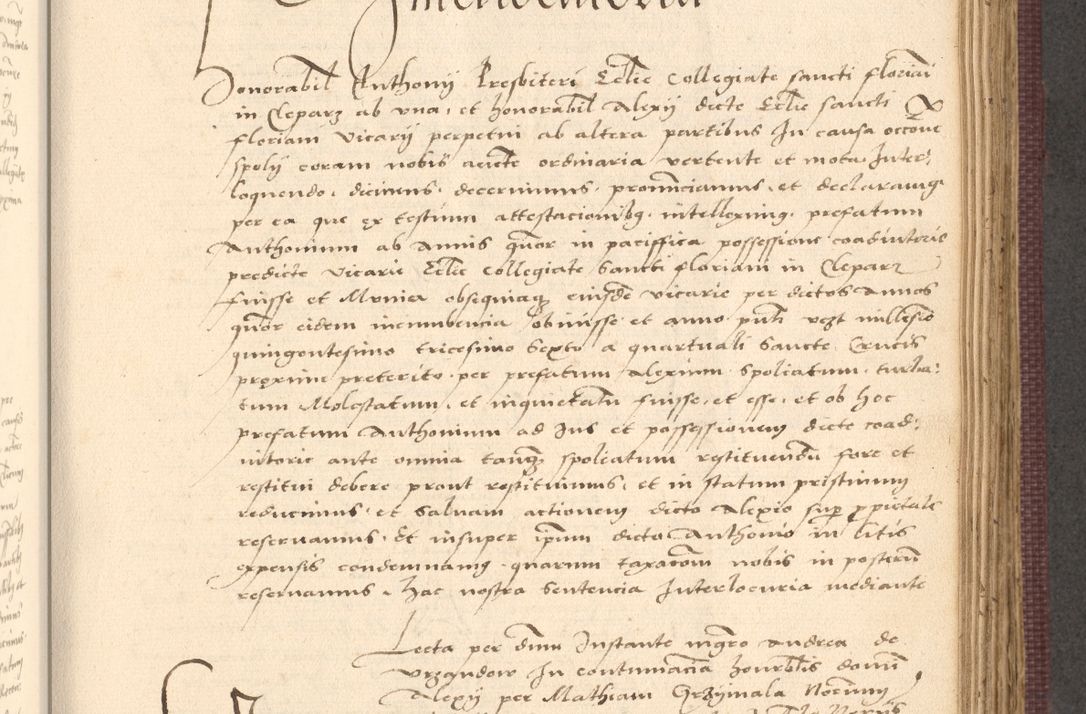 Honorabil Anthonij Presbiteri Eccl̄ie Collegiate sancti floriani
in Cleparz ab vna, et honorabil Alexij dicte Eccl̄ie sancti
floriani vicarij perpetui ab altera partibus In causa occōne
spolij coram nobis aucte ordinaria vertente et mota. Inter
loquendo, dicimus, decernimus, pronunciamus, et declaramus
per ea que ex testium attestacionibus, intelleximus, prefatum
Anthonium ab Annis quor in paciffica possessione coadiutorie
predicte vicarie Ecl̄ie Collegiate Sancti floriani in Cleparz
fuisse et Munia obsequiaq eiusdē vicarie per dictos Annos
quor eidem incumbencia obiuisse et anno pnti vzt millesio
quingentesimo tricesimo Sexto a quartuali Sancte Crucis
proxime preterito, per prefatum Alexium spoliatum, turba:
tum Molestatum, et inquietatū fuisse, et esse, et ob hoc
prefatum Anthonium ad Ius et possessionem dicte coad:
iutorie ante omnia tanq spoliatum restituendū fore et
restitui debere prout restituimus, et in statum pristinum
reducimus, et Saluam actionem dicto Alexio sup ppietate
reseruamus, Et insuper ipum dicto Anthonio in litis
expensis condemnamus, quarum taxacom nobis in posterū
reseruamus, hac nostra Sentencia Interlocuria mediante
Lecta per dnm Instante mgro Andrea de
Vrzandow In contumacia honrblis domi
Alexij per Mathiam Grzymala Nocumij